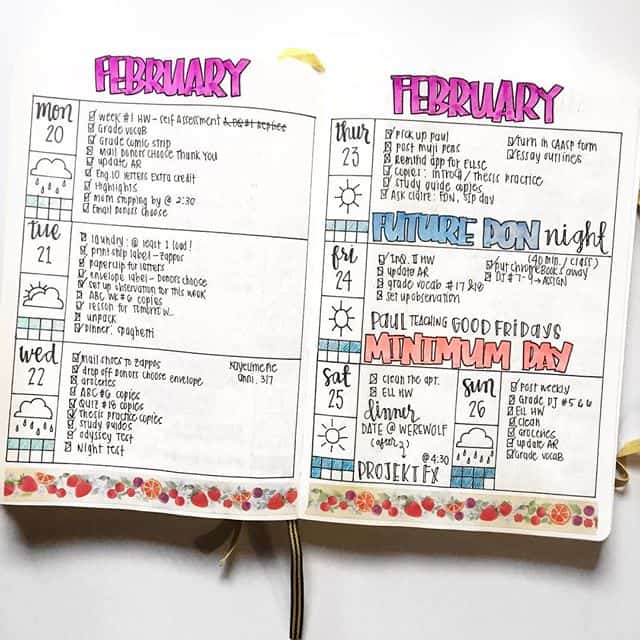 FEBRUARY
mon
20
week #1 HW - Self Assessment & DQ #1 Replies
Grade vocab
Grade comic strip
Mail Donors Choose Thank You
update AR
Eng. 10 letters Extra credit
Highlights
Mom stopping by @ 2:30
Email Donors Choose
tue
21
laundry: @ least 1 load!
print ship label - Zappos
paperclip for letters
envelope label - Donors choose
set up observation for this week
ABC WK #6 copies
lesson for tomorrow
unpack
Dinner: spaghetti
wed
22
Mail shoes to Zappos
drop off Donors Choose envelope
groceries
ABC #6 copies
Quiz #16 copies
Thesis practice copies
study guides
odyssey Test
Night Test
3/7
FEBRUARY
thur
23
pick up paul
Post Muji pens
Remind app for ELLSE
copies: intro / thesis practice
study guide copies
Ask Claire: FDN, SIP day
turn in CAASP form
Essay outlines
FUTURE DON night
fri
24
Inq. II HW
update AR
grade vocab #17 &18
set up observation
(40 min. / class)
put chromebooks away
DJ #7-9 → ASSIGN
PAUL TEACHING GOOD FRIDAYS
MINIMUM DAY
sat
25
clean the apt.
ELL HW
dinner
DATE @ WEREWOLF
(after)
@ 4:30
PROJEKT FX
sun
26
Post weekly
Grade DJ #5 & 6
ELL HW
clean
groceries
update AR
Grade vocab